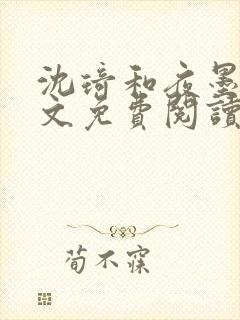 沈琦和夜墨
文免費閱讀
荀不寐